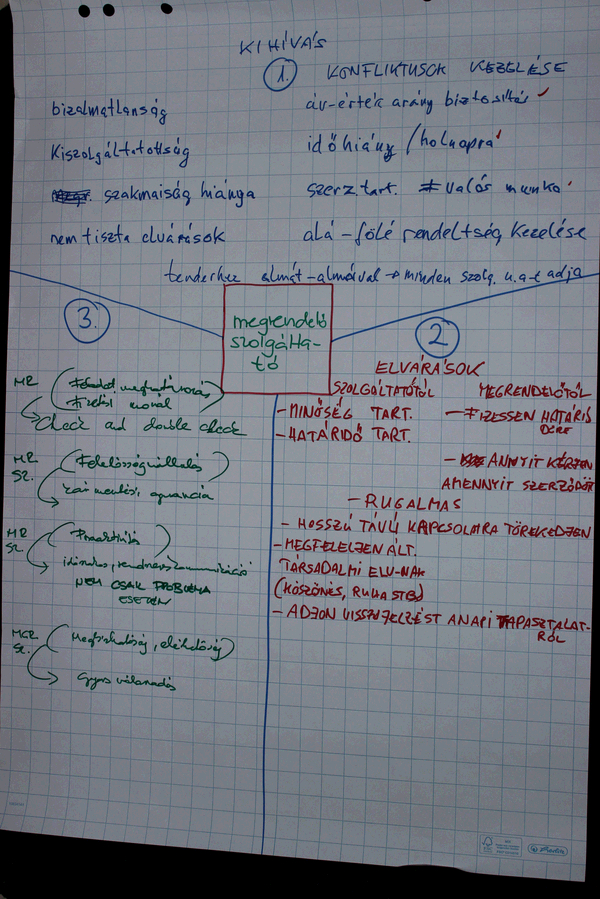 KIHÍVÁS
1. KONFLIKTUSOK KEZELÉSE
bizalmatlanság
Kiszolgáltatottság
szakmaiság hiánya
nem tiszta elvárások
ár-érték arány biztosítás
időhiány / holnapra
szerz. tart. ≠ valós munka
alá - fölé rendeltség kezelése
tenderhez almát - almával → minden szolg. u.a-t adja
megrendelő
szolgálta-
tó
2.
ELVÁRÁSOK
SZOLGÁLTATÓTÓL
- MINŐSÉG TART.
- HATÁRIDŐ TART.
MEGRENDELŐTŐL
- FIZESSEN HATÁRIDŐRE
- ANNYIT KÉRJEN
AMENNYIT SZERZŐDÖTT
- RUGALMAS
- HOSSZÚ TÁVÚ KAPCSOLATRA TÖREKEDJEN
- MEGFELELJEN ÁLT.
TÁRSADALMI ELV-NAK
(KÖSZÖNÉS, RUHA STB)
- ADJON VISSZAJELZÉST A NAPI TAPASZTALAT-
RÓL
3.
MR
Feladat meghatározás
Fizetési morál
Check and double check
MR
SZ.
Felelősségvállalás
MR
SZ.
Proaktivitás
NEM CSAK PROBLÉMA
ESETÉN
MGR
SZ.
Megbízhatóság, elérhetőség
Gyors válaszadás